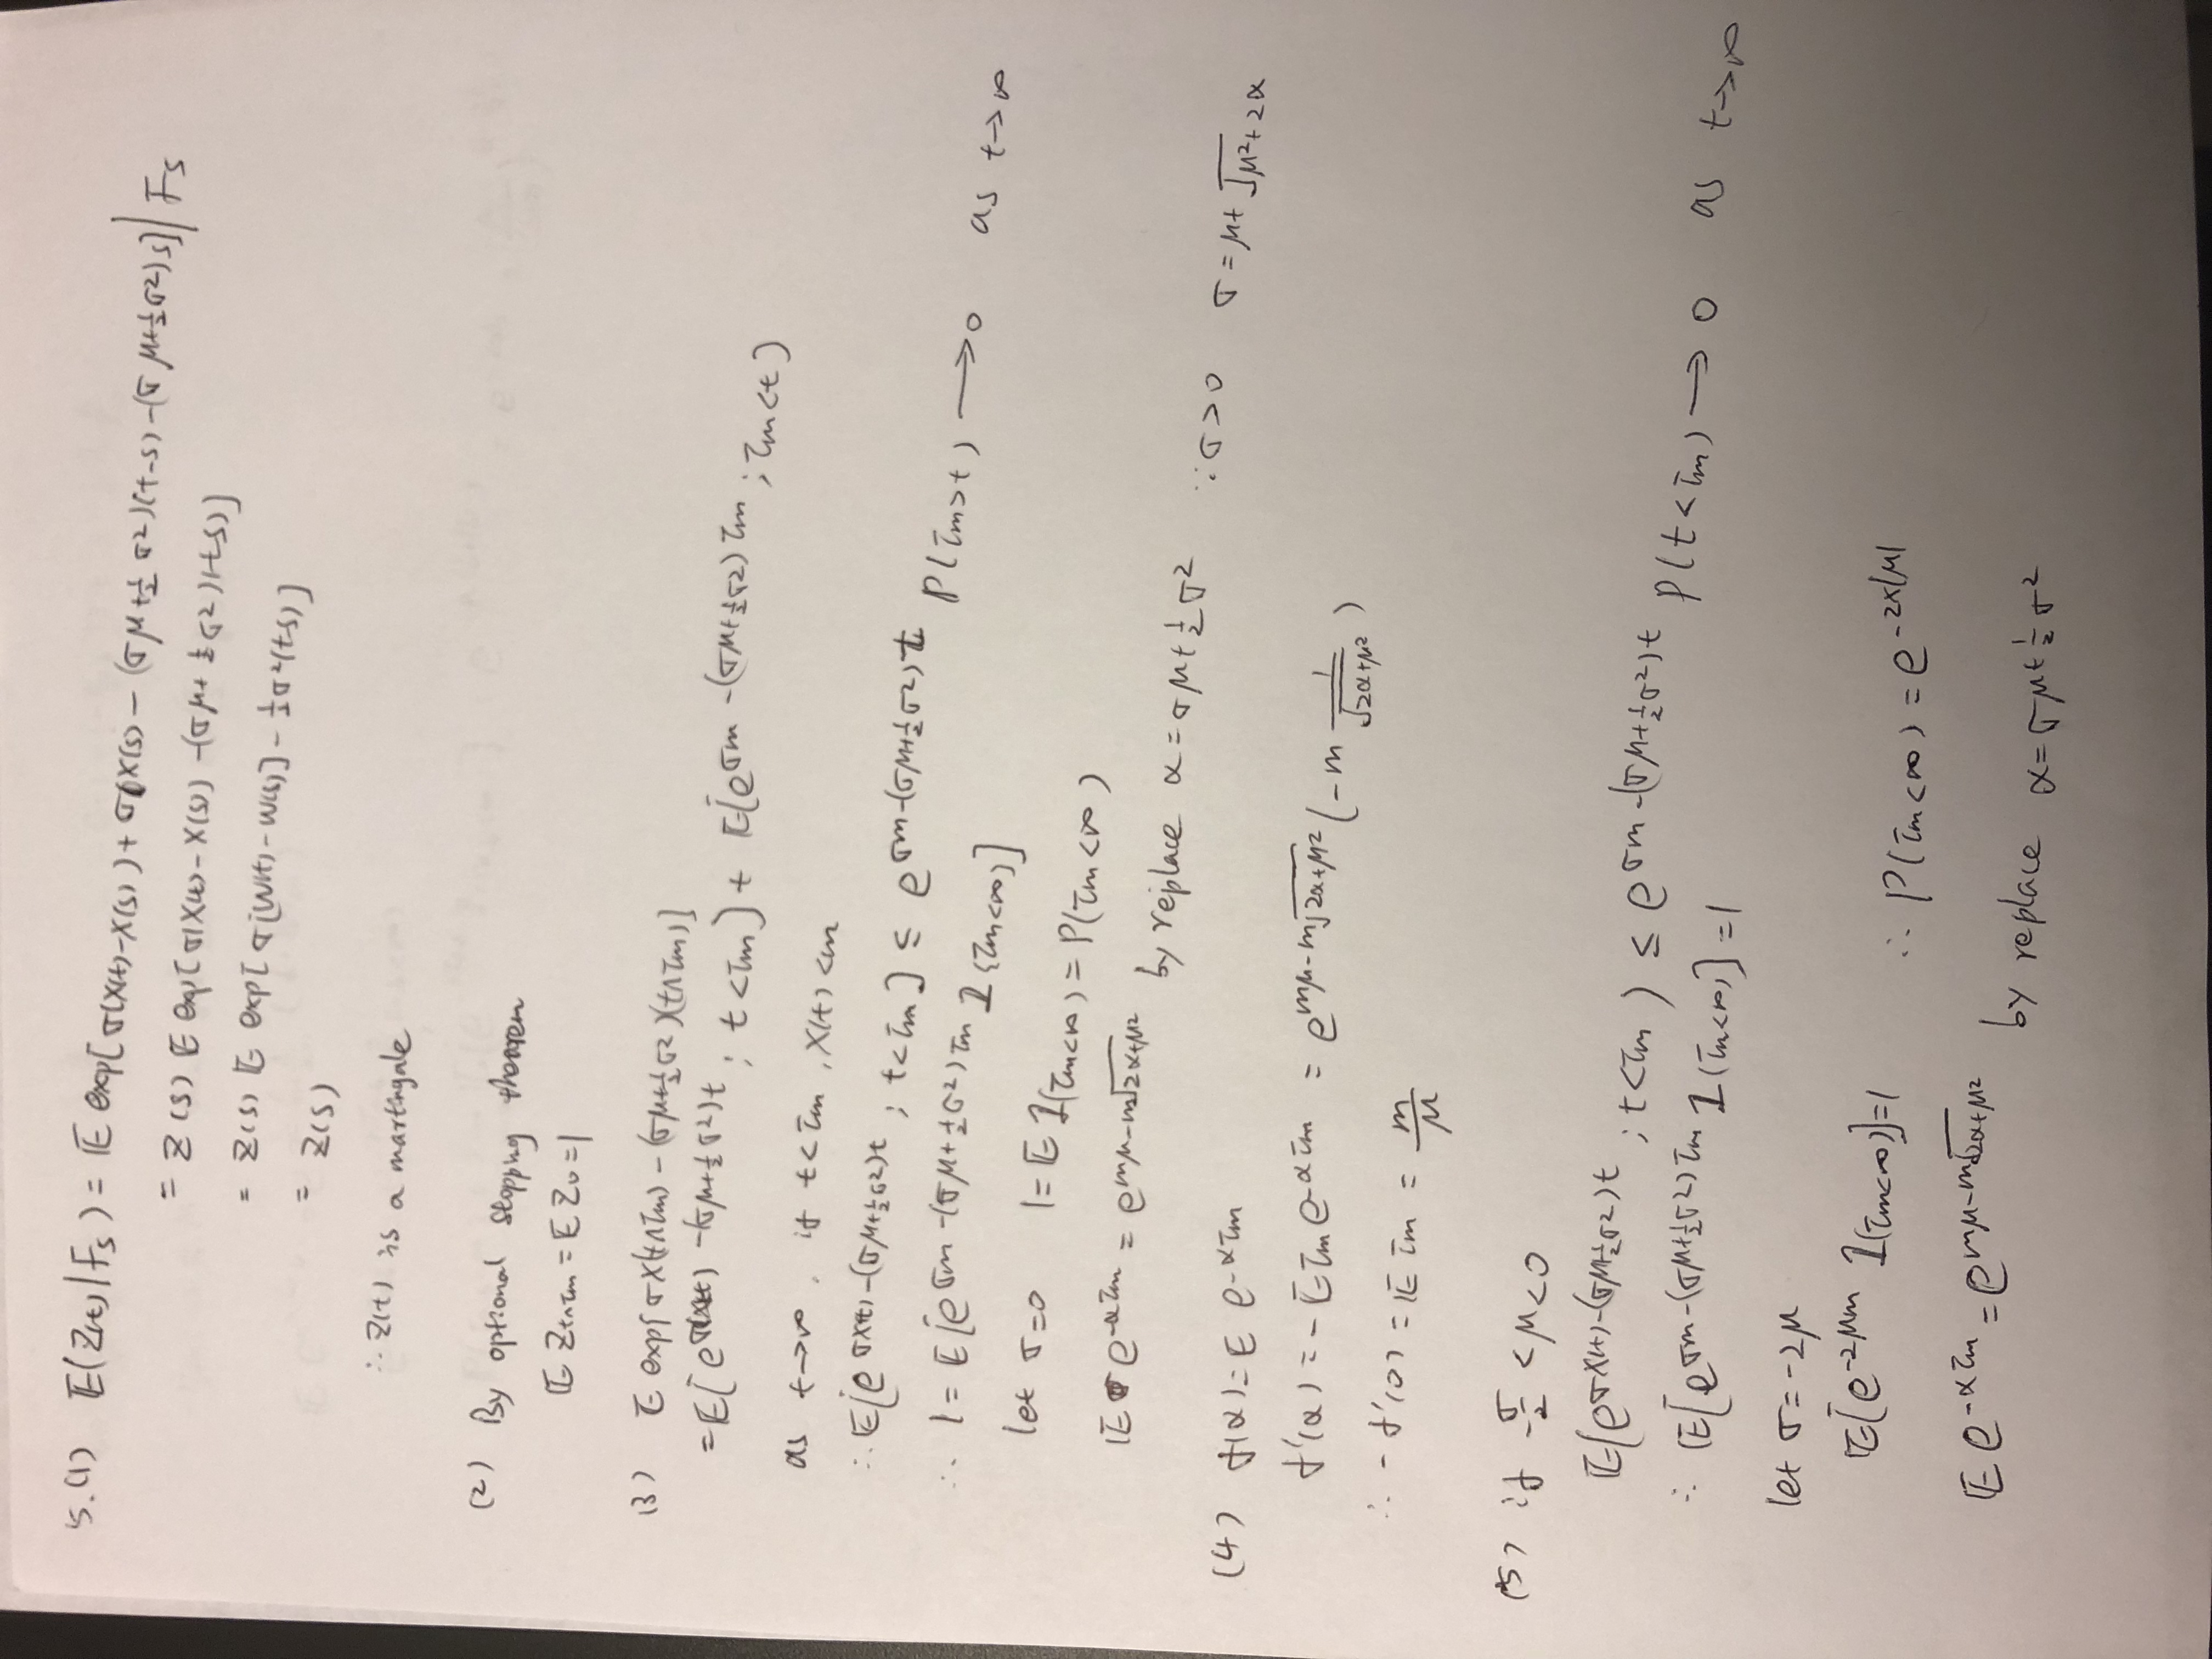 5.(1) E(Z(t)|Fs) = E exp[σ(X(t)-X(s)) + σ(X(s) - (σμ+½σ²)(t-s) - (σμ+½σ²)s] | Fs
= Z(s) E exp[σ(X(t)-X(s)) - (σμ+½σ²)(t-s)]
= Z(s) E exp[σ[W(t)-W(s)] - ½σ²(t-s)]
= Z(s)
∴ Z(t) is a martingale
(2) By optional stopping theorem
E Z_{t∧τm} = E Z_0 = 1
(3) E exp[σX(t∧τm) - (σμ+½σ²)(t∧τm)]
= E[e^{σX(t) - (σμ+½σ²)t}; t<τm] + E[e^{σm - (σμ+½σ²)τm}; τm<t]
as t→∞, if t<τm, X(t)<m
∴ E[e^{σX(t)-(σμ+½σ²)t}; t<τm] ≤ e^{σm-(σμ+½σ²)t} P(τm>t) → 0 as t→∞
∴ 1 = E[e^{σm-(σμ+½σ²)τm} 1{τm<∞}]
let σ=0 1 = E 1(τm<∞) = P(τm<∞)
E e^{-ατm} = e^{mμ-m√(2α+μ²)} by replace α = σμ+½σ² ∵ σ>0 σ = μ+√(μ²+2α)
(4) f(α) = E e^{-ατm}
f'(α) = -E τm e^{-ατm} = e^{mμ-m√(2α+μ²)} (-m 1/√(2α+μ²))
∴ -f'(0) = E τm = m/μ
(5) if -σ/2 < μ < 0
E[e^{σX(t)-(σμ+½σ²)t}; t<τm) ≤ e^{σm-(σμ+½σ²)t} P(t<τm) → 0 as t→∞
∴ E[e^{σm-(σμ+½σ²)τm} 1(τm<∞)] = 1
let σ = -2μ
E[e^{-2μm} 1(τm<∞)] = 1 ∴ P(τm<∞) = e^{-2x|μ|}
E e^{-ατm} = e^{mμ-m√(2α+μ²)} by replace α = σμ+½σ²